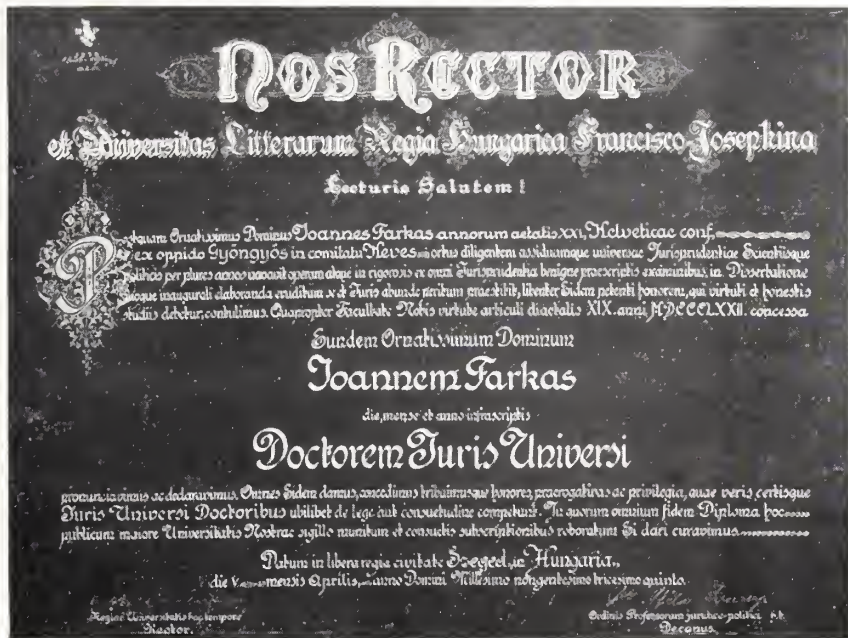 NOS RECTOR
et Universitas Litterarum Regia Hungarica Francisco Josephina
Lecturis Salutem!
Postquam Ornatissimus Dominus Joannes Farkas annorum aetatis XXI, Helveticae conf.
ex oppido Gyöngyös in comitatu Heves ortus diligentem assiduamque universae Jurisprudentiae Scientiisque
politicis per plures annos navavit operam atque in rigorosis ex omni Jurisprudentia benigne praescriptis examinibus, in Dissertatione
quoque inaugurali elaboranda eruditum se et Juris abunde peritum praestitit, libenter Eidem petenti honorem, qui virtuti et honestis
studiis debetur, contulimus. Quapropter Facultate Nobis virtute articuli diaetalis XIX. anni MDCCCLXXII. concessa
Eundem Ornatissimum Dominum
Joannem Farkas
die, mense et anno infrascriptis
Doctorem Juris Universi
pronunciavimus ac declaravimus. Omnes Eidem damus, concedimus tribuimusque honores, praerogativas ac privilegia, quae veris certisque
Juris Universi Doctoribus ubilibet de lege aut consuetudine competunt. In quorum omnium fidem Diploma hoc
publicum maiore Universitatis Nostrae sigillo munitum et consuetis subscriptionibus roboratum Ei dari curavimus.
Datum in libera regia civitate Szeged, in Hungaria,
die mensis Aprilis, anno Domini Millesimo nongentesimo tricesimo quinto.
Regiae Universitatis hoc tempore
Rector.
Ordinis Professorum juridico-politici h.t.
Decanus.